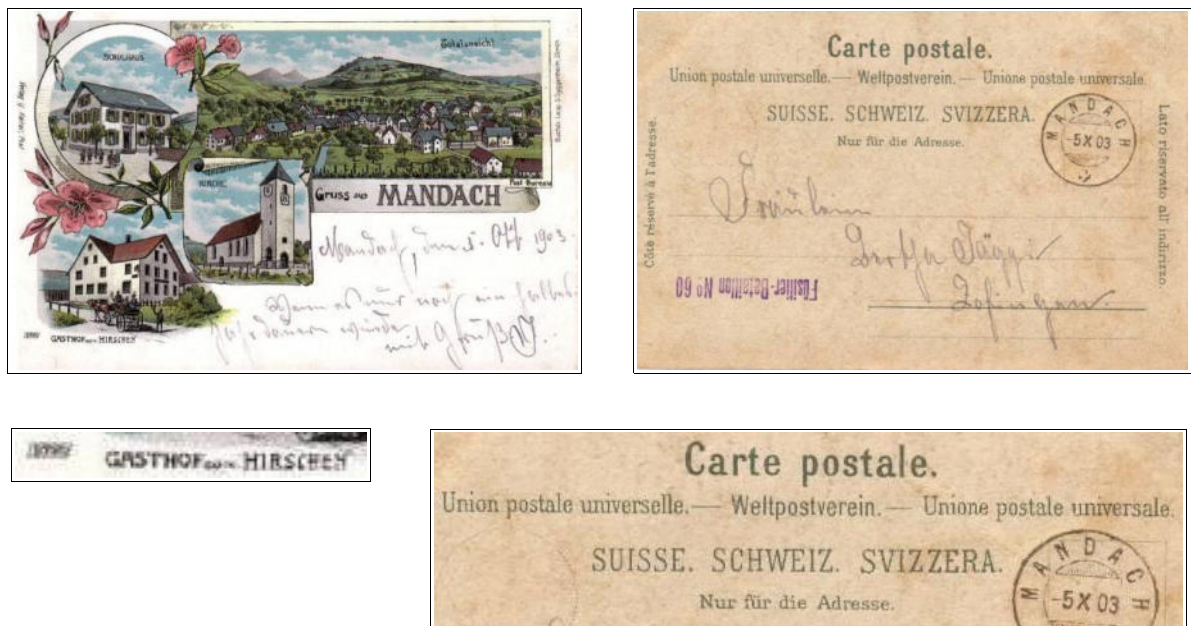 SCHULHAUS
Totalansicht
KIRCHE
Post-Bureau
Gruss aus MANDACH
Mandach, den 5. Okt 1903.
Wenn es nur noch ein halbes
Jahr dauern würde
mit Gruß
GASTHOF ZUM HIRSCHEN
Carte postale.
Union postale universelle.— Weltpostverein. — Unione postale universale.
SUISSE. SCHWEIZ. SVIZZERA.
Nur für die Adresse.
MANDACH
-5 X 03
Côté réservé à l'adresse.
Lato riservato all' indirizzo.
Fräulein
Bertha Jäggi
Zofingen.
Füsilier-Bataillon No 60
GASTHOF ZUM HIRSCHEN
Carte postale.
Union postale universelle.— Weltpostverein. — Unione postale universale.
SUISSE. SCHWEIZ. SVIZZERA.
Nur für die Adresse.
MANDACH
-5 X 03